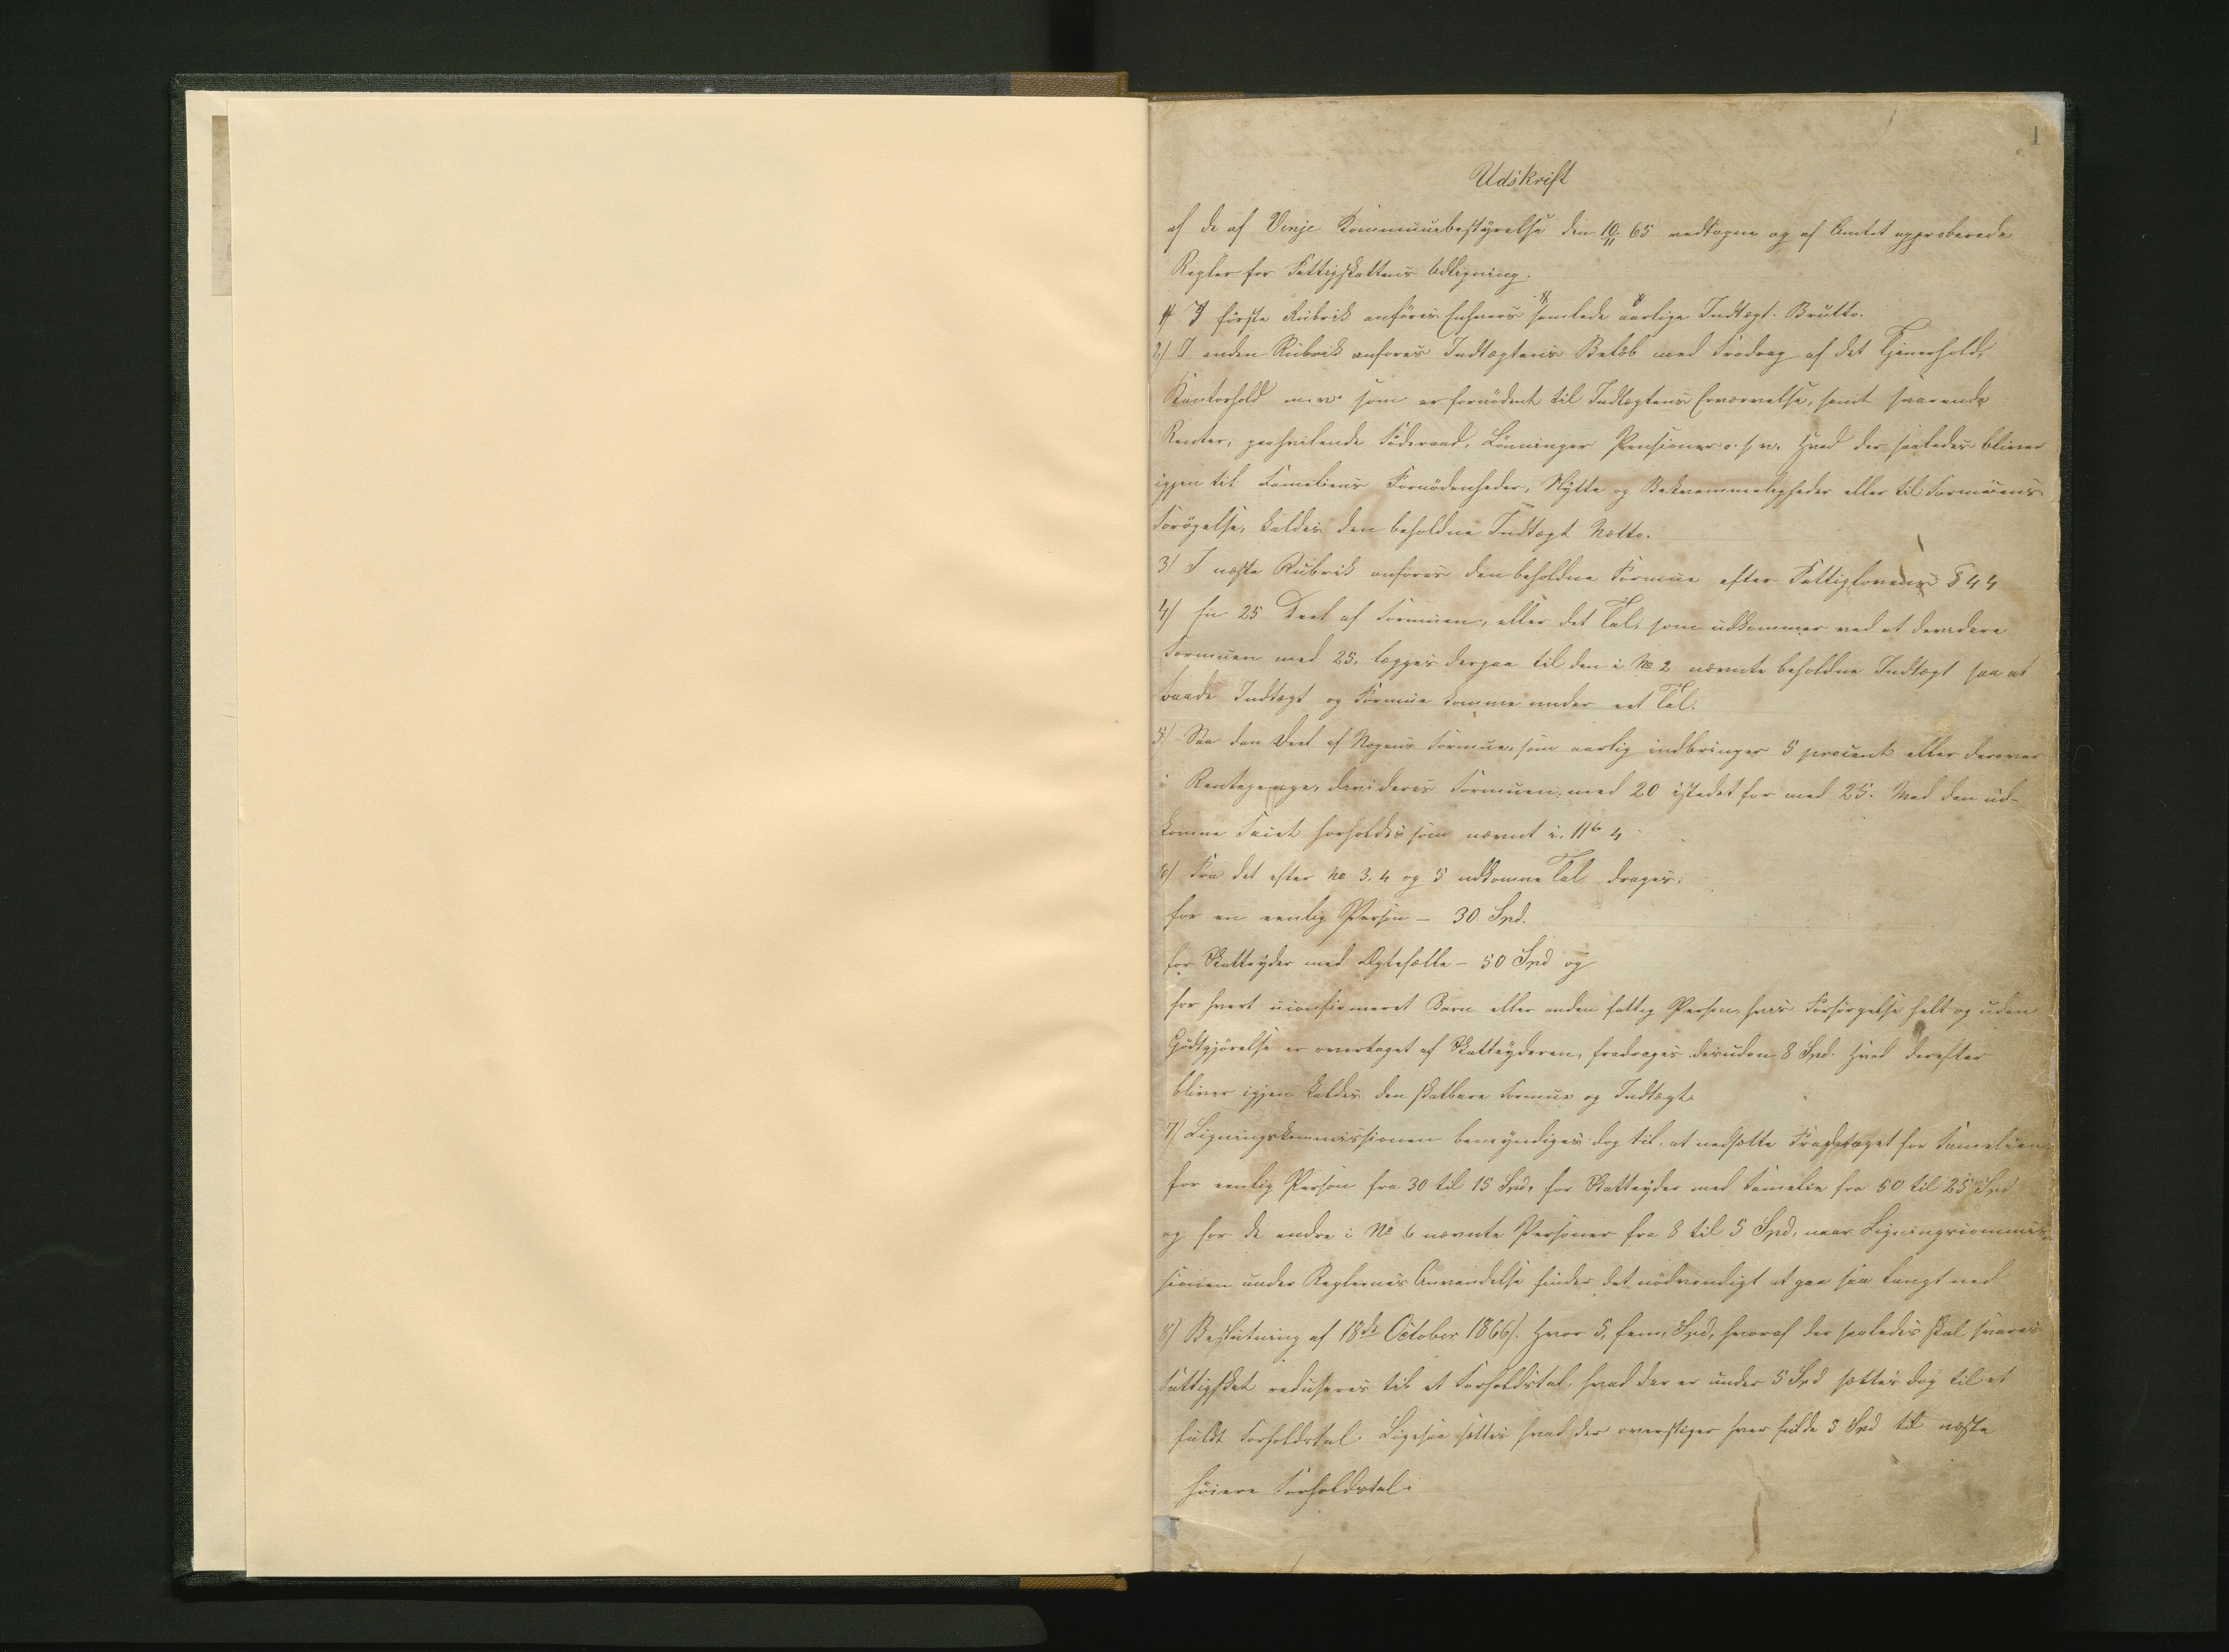 1
Udskrift
af de af Vinje Kommunebestyrelse den 10/11 65 vedtagne og af Amtet approberede
Regler for Fattigskattens Udligning.
1) I første Rubrik anføres Enhvers samlede aarlige Indtægt. Brutto.
2) I anden Rubrik anføres Indtægtens Beløb med Fradrag af det Tjenerhold,
Kontorhold m.v. som er fornødent til Indtægtens Erværvelse, samt svarende
Renter, paahvilende Føderaad, Lønninger Pensioner o.s.v. Hvad der saaledes bliver
igjen til Fameliens Fornødenheder, Nytte og Bekvemmeligheder eller til Formuens
Forøgelse, kaldes den beholdne Indtægt Netto.
3) I næste Rubrik anføres den beholdne Formue efter Fattiglovens § 44
4) En 25 Deel af Formuen, eller det Tal, som udkommer ved at devidere
Formuen med 25, lægges derpaa til den i No 2 nævnte beholdne Indtægt saa at
baade Indtægt og Formue komme under eet Tal.
5) Paa den Deel af Nogens Formue, som aarlig indbringer 5 procent eller derover
i Rentepenge, devideres Formuen med 20 istedet for med 25. Med den ud-
komne Facit forholdes som nævnt i No 4
6) Fra det efter No 3, 4 og 5 udkomne Tal drages:
for en eenlig Person – 30 Spd.
for Skatteyder med Ægtefælle – 50 Spd og
for hvert uconfirmeret Barn eller anden fattig Person, hvis Forsørgelse helt og uden
Godtgjørelse er overtaget af Skatteyderen, fradrages desuden 8 Spd. Hvad derefter
bliver igjen kaldes den skatbare Formue og Indtægt.
7) Ligningskommissionen bemyndiges dog til at nedsætte Fradraget for Famelien
for eenlig Person fra 30 til 15 Spd, for Skatteyder med Famelie fra 50 til 25 Spd
og for de andre i No 6 nævnte Personer fra 8 til 5 Spd, naar Ligningscommis-
sionen under Reglernes Anvendelse finder det nødvendigt at gaa saa langt ned
8) Beslutning af 18de October 1866). Hver 5, fem, Spd, hvoraf der saaledes skal svares
Fattigskat reduseres til et Forholdstal, hvad der er under 5 Spd sættes dog til et
fuldt Forholdstal. Ligesaa sættes hvad der overstiger hver fulde 5 Spd til næste
høiere Forholdstal.